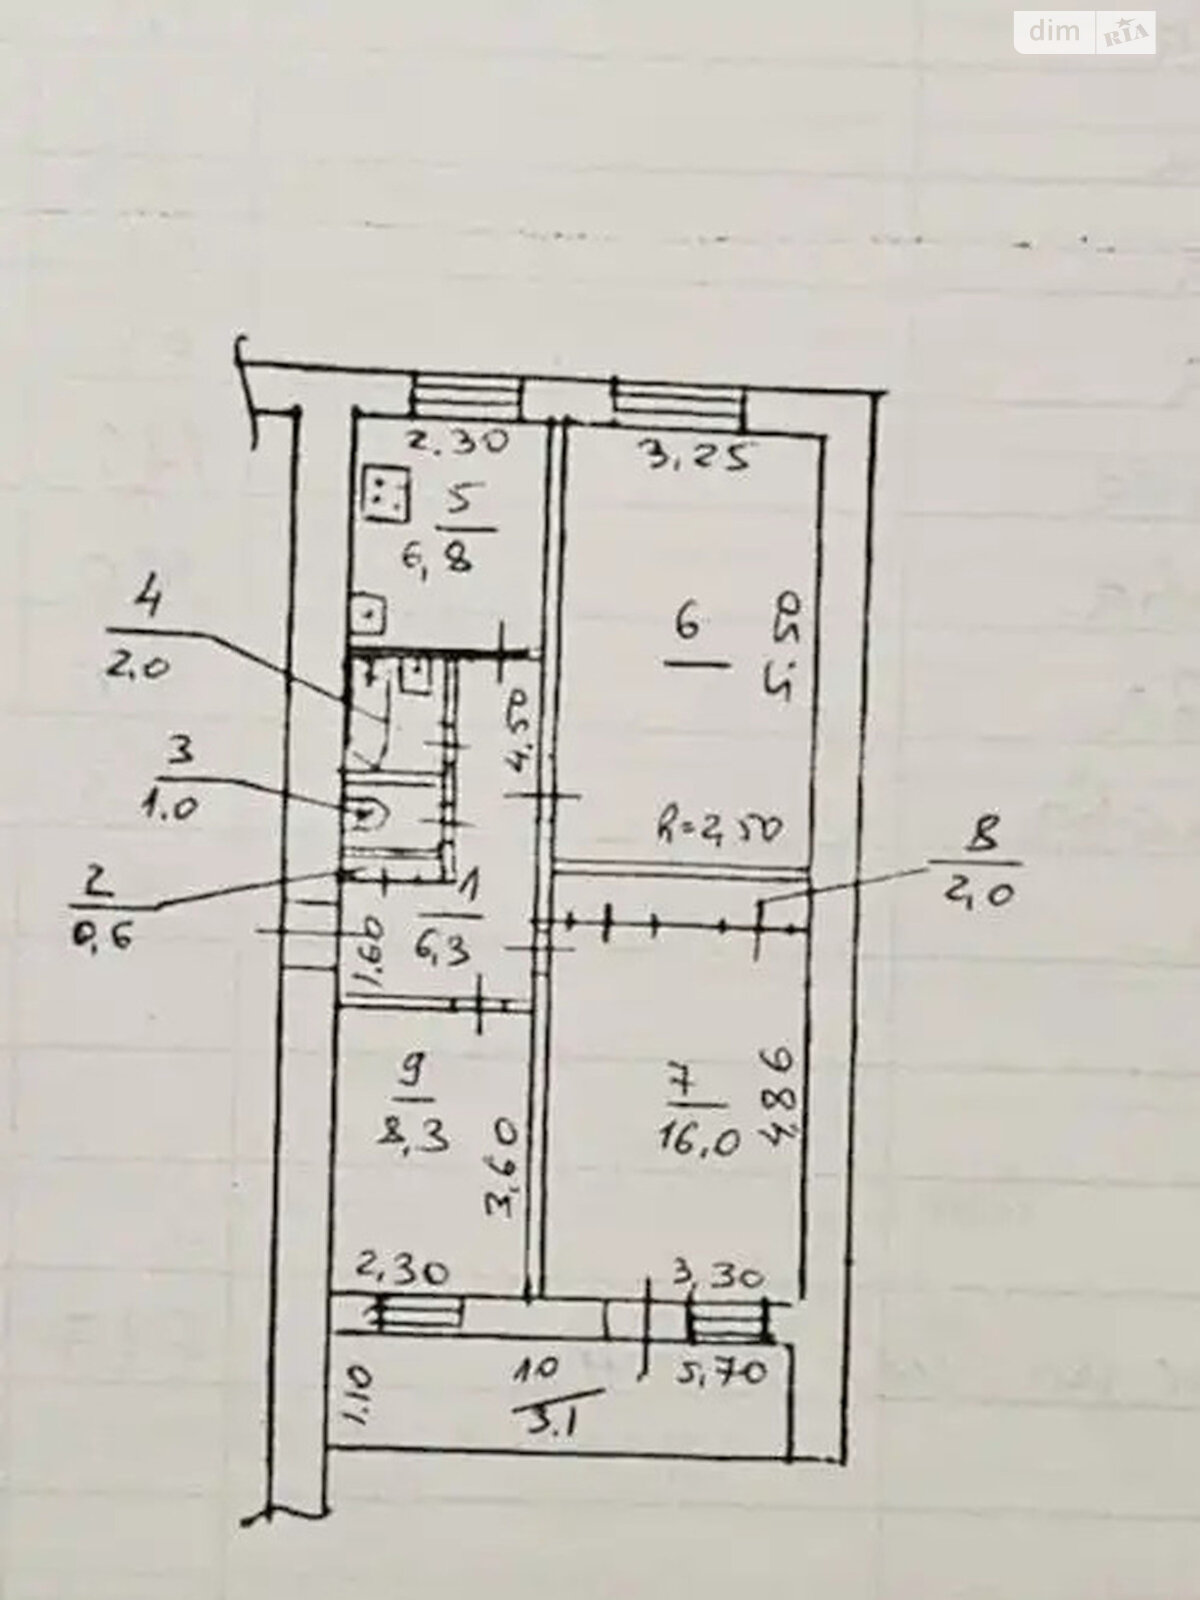 dim RIA
2.30
3,25
5
6,8
4
2.0
6
5.50
4.50
3
1.0
h=2,50
8
2,0
2
0,6
1
6,3
1.60
9
8,3
3,60
7
16,0
4,86
2,30
3,30
1.10
10
3.1
5,70